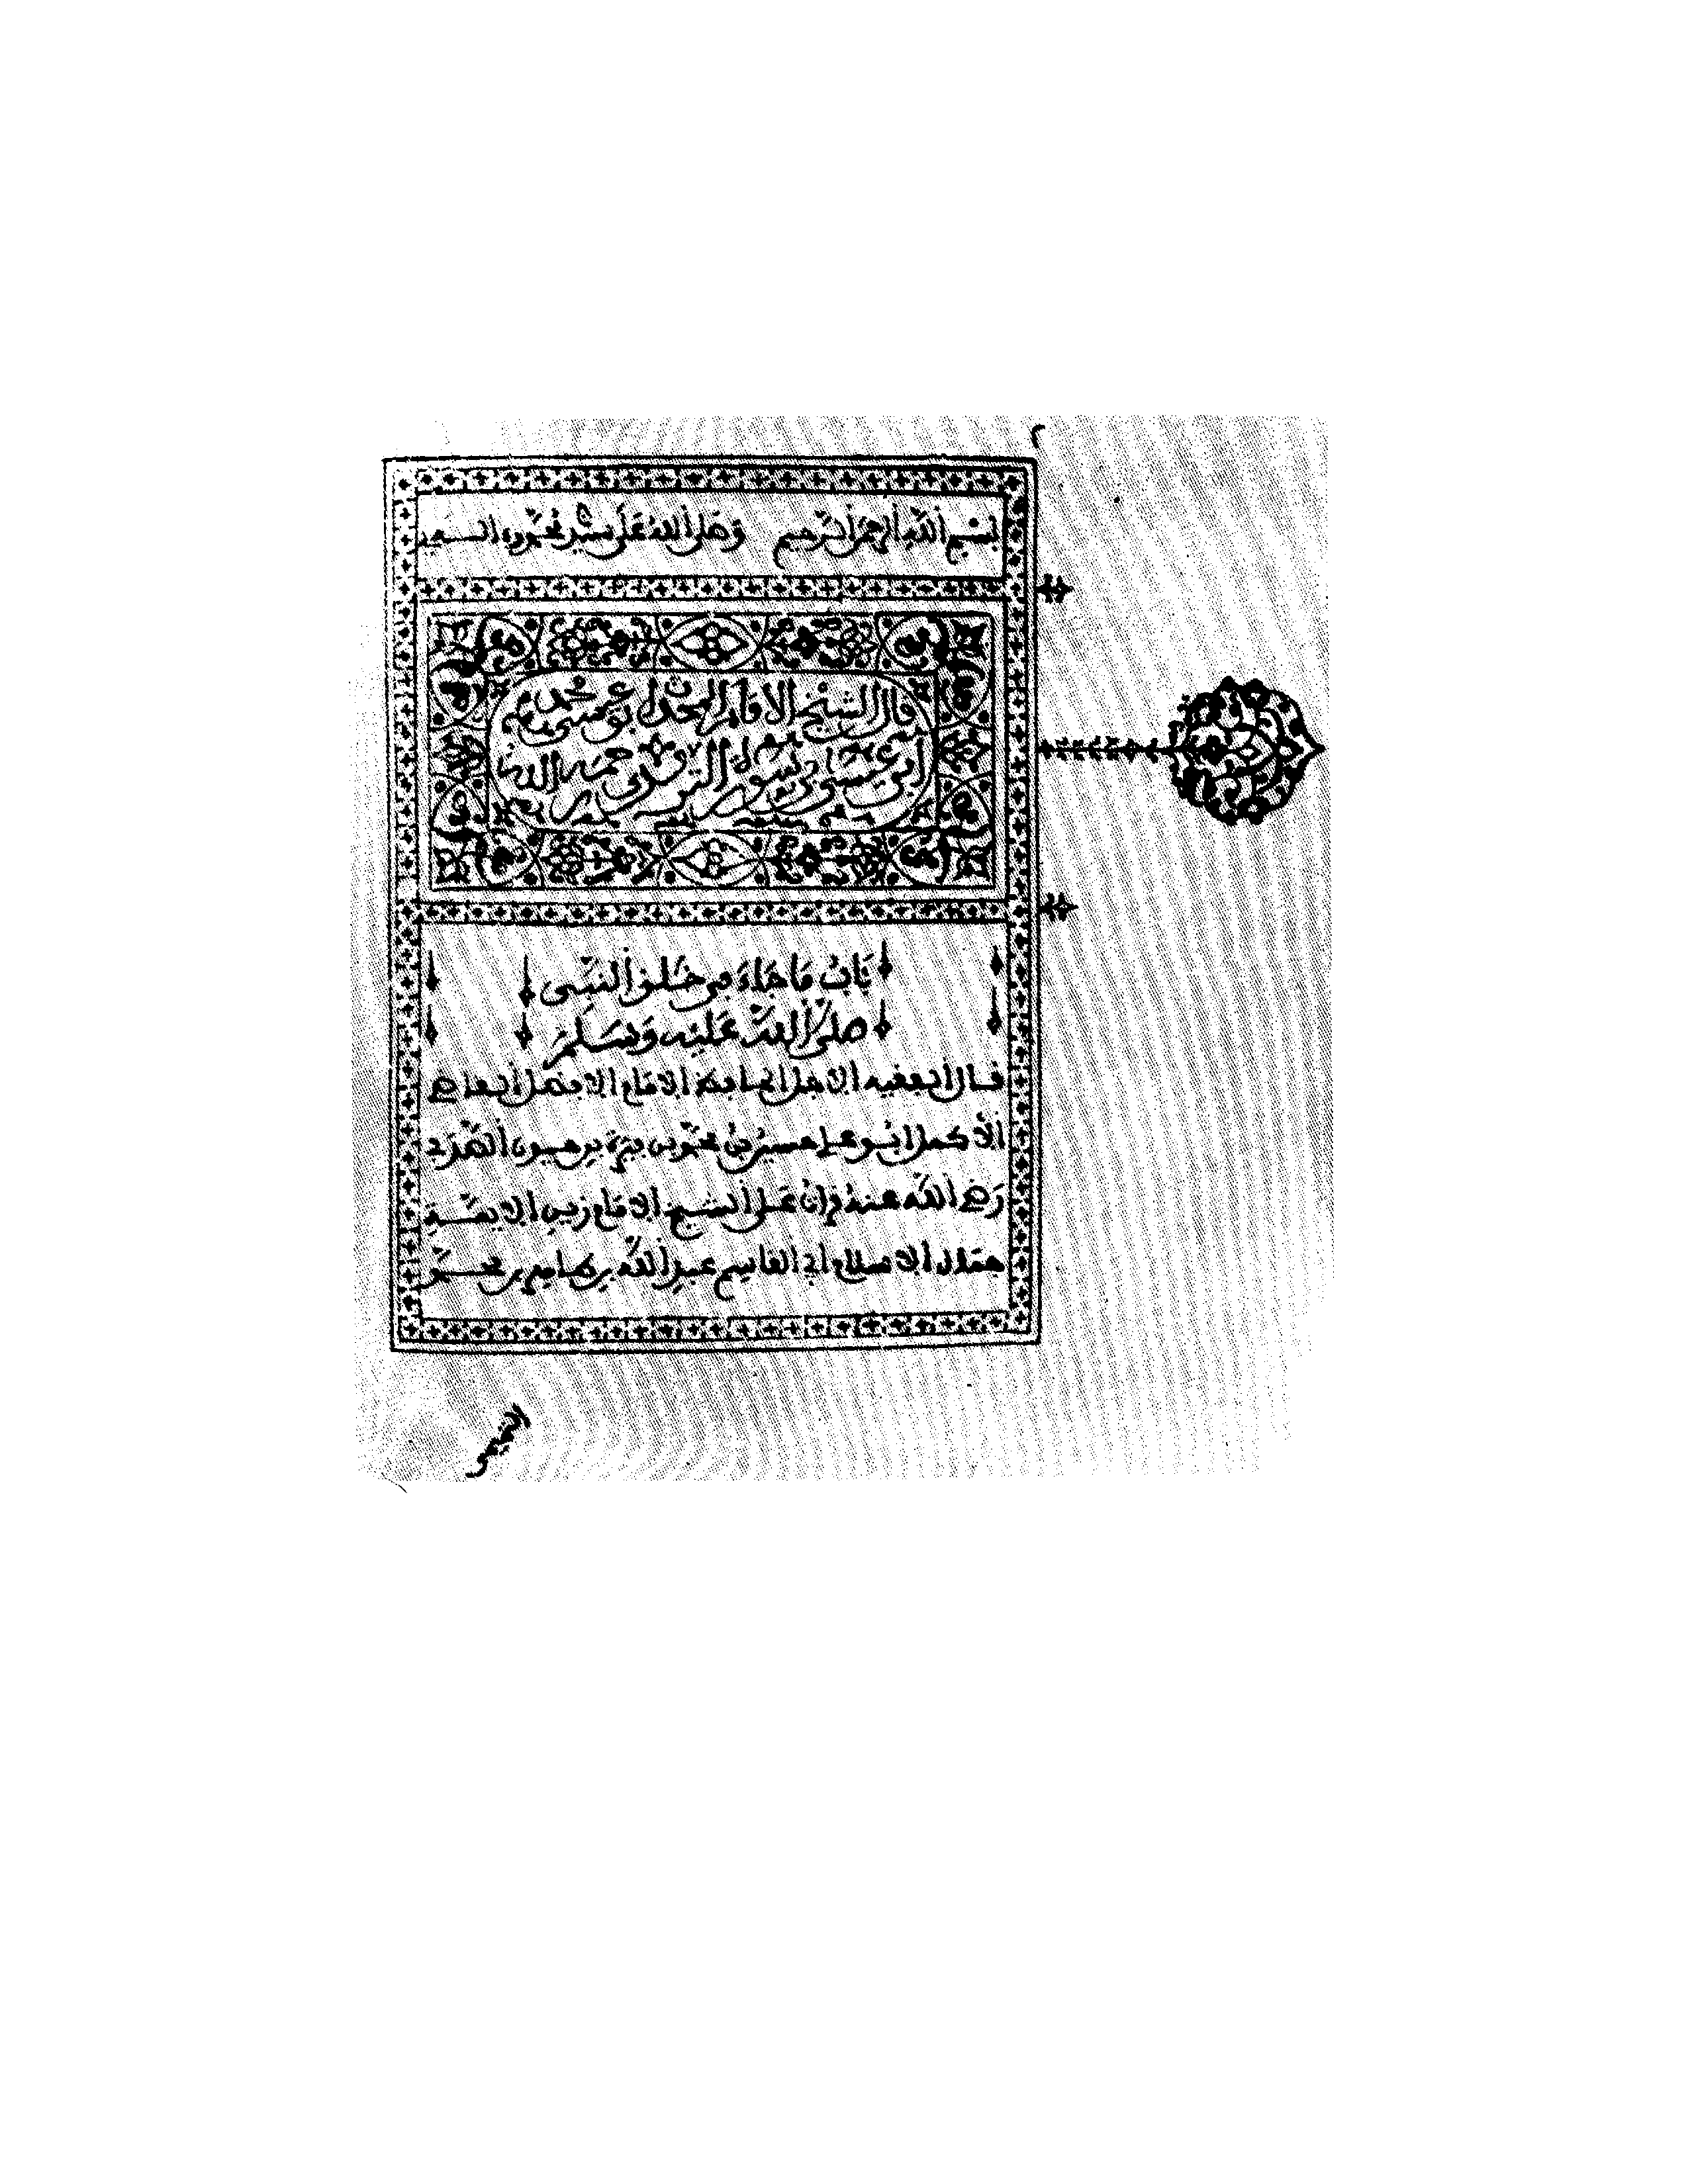 بسم الله الرحمن الرحيم وصلى الله على سيدنا محمد وءاله
قال الشيخ الامام المحدث ابو عيسى محمد بن
عيسى بن سورة الترمذي رحمه الله
بَابُ مَا جَاءَ في خَلْق النَّبِيّ
صَلَّى اللهُ عَلَيْهِ وَسَلَّمَ
قال الفقيه الاجل الحافظ الامام الافضل القاضي
الاكمل ابو علي حسين بن محمد بن الصدفي
رضي الله عنه قرات على الشيخ الامام زين الايمة
جمال الاسلام أبي القاسم عبد الله بن طاهر بن محمد
التميمي